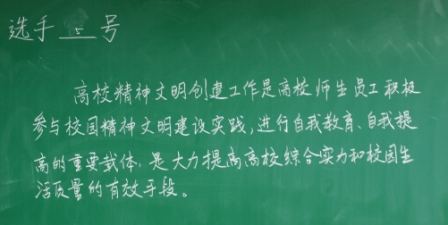 选手 五 号
高校精神文明创建工作是高校师生员工积极
参与校园精神文明建设实践,进行自我教育、自我提
高的重要载体,是大力提高高校综合实力和校园生
活质量的有效手段。